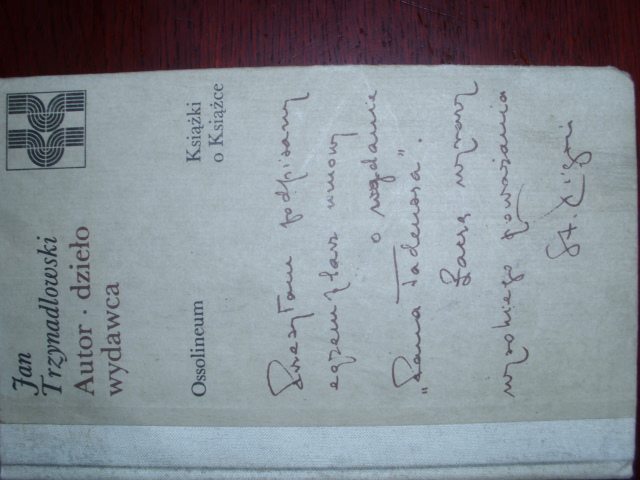 Jan
Trzynadlowski
Autor · dzieło
wydawca
Ossolineum
Książki
o Książce
Przesyłam podpisany
egzemplarz umowy
o wydanie
„Pana Tadeusza”.
Łączę wyrazy
wysokiego poważania
St.